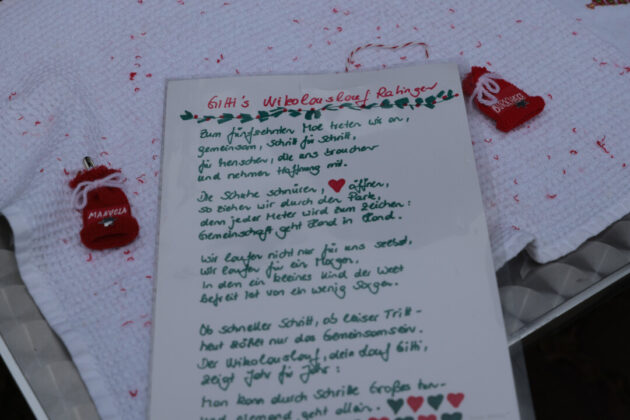 Gitti's Nikolauslauf Ratingen
Zum fünfzehnten Mal treten wir an,
gemeinsam, Schritt für Schritt,
für Menschen, die uns brauchen
und nehmen Hoffnung mit.
Die Schuhe schnüren, ❤ öffnen,
so ziehen wir durch den Park,
denn jeder Meter wird zum Zeichen:
Gemeinschaft geht Hand in Hand.
Wir laufen nicht nur für uns selbst,
wir laufen für ein Morgen,
In dem ein kleines Kind der Welt
befreit ist von ein wenig Sorgen.
Ob schneller Schritt, ob leiser Tritt -
heut zählt nur das Gemeinsamsein.
Der Nikolauslauf, dein Lauf Gitti,
zeigt Jahr für Jahr:
Man kann durch Schritte Großes tun -
und niemand geht allein.
MANUELA